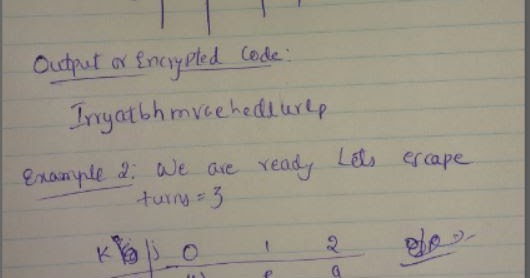 Output or Encrypted Code:
Irryatbhmvaehedlurlp
Example 2: We are ready Lets escape
turns = 3
K j 0 1 2
e a